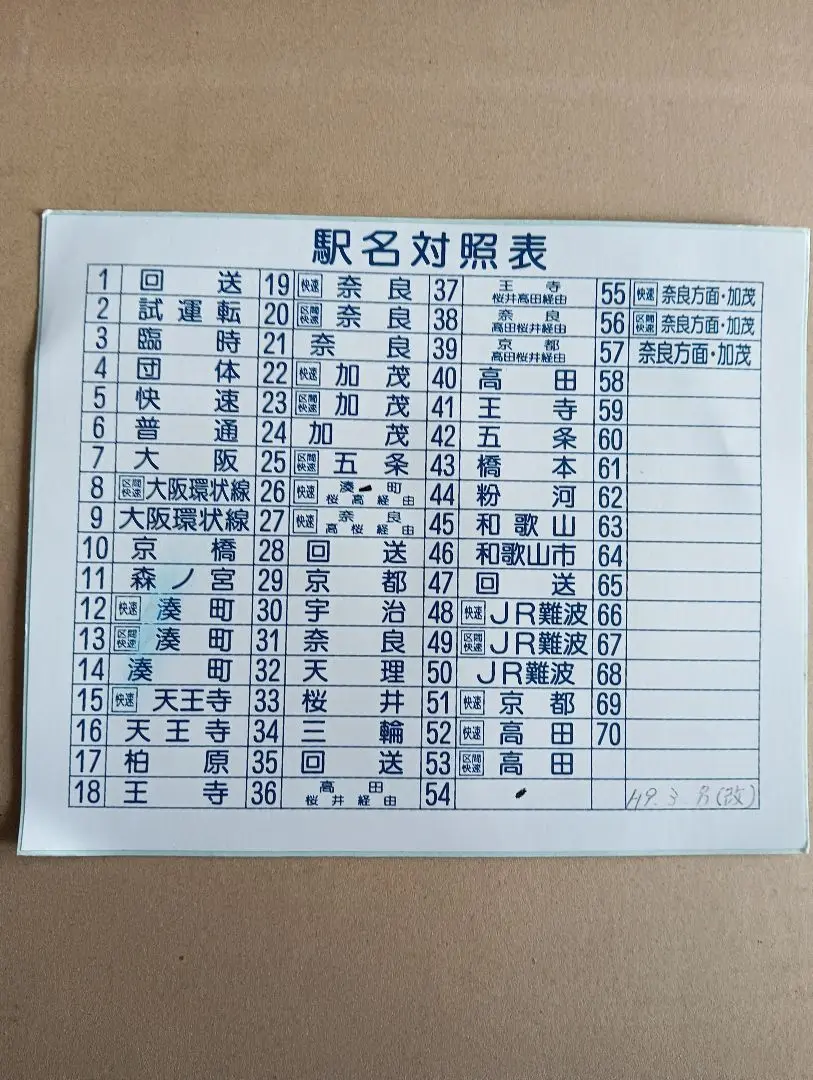 駅名対照表
1 回送 19 快速 奈良 37 王寺 桜井高田経由 55 快速 奈良方面・加茂
2 試運転 20 区間快速 奈良 38 奈良 高田桜井経由 56 区間快速 奈良方面・加茂
3 臨時 21 奈良 39 京都 高田桜井経由 57 奈良方面・加茂
4 団体 22 快速 加茂 40 高田 58
5 快速 23 区間快速 加茂 41 王寺 59
6 普通 24 加茂 42 五条 60
7 大阪 25 区間快速 五条 43 橋本 61
8 区間快速 大阪環状線 26 快速 湊町 桜高経由 44 粉河 62
9 大阪環状線 27 快速 奈良 高桜経由 45 和歌山 63
10 京橋 28 回送 46 和歌山市 64
11 森ノ宮 29 京都 47 回送 65
12 快速 湊町 30 宇治 48 快速 JR難波 66
13 区間快速 湊町 31 奈良 49 区間快速 JR難波 67
14 湊町 32 天理 50 JR難波 68
15 快速 天王寺 33 桜井 51 快速 京都 69
16 天王寺 34 三輪 52 快速 高田 70
17 柏原 35 回送 53 区間快速 高田
18 王寺 36 高田 桜井経由 54 H9.3 (改)